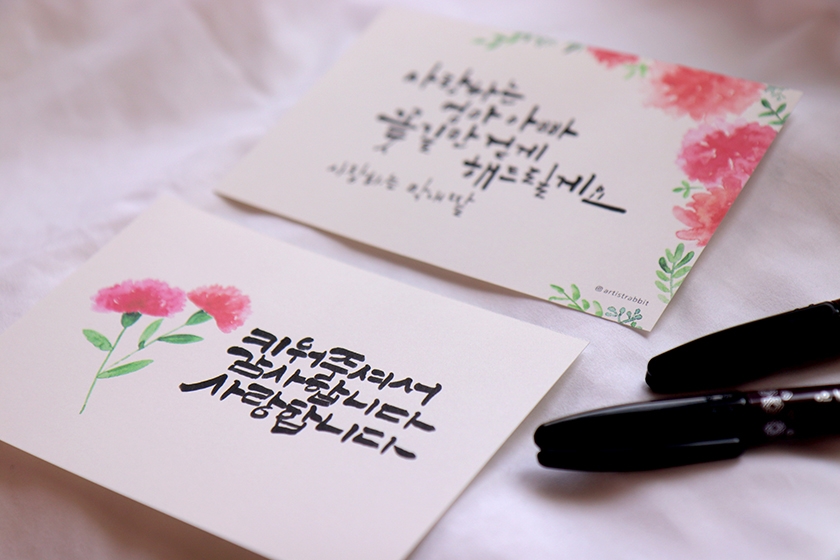 사랑하는
엄마 아빠
꽃길만 걷게
해드릴게요
사랑하는 막내딸
@artistrabbit
키워주셔서
감사합니다
사랑합니다